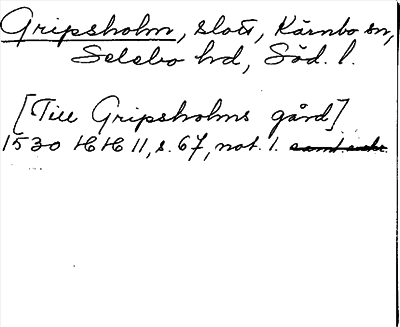 Gripsholm, slott, Kärnbo sn,
Selebo hd, Söd. l.
[Till Gripsholms gård]
1530 HH 11, s. 67, not. 1.